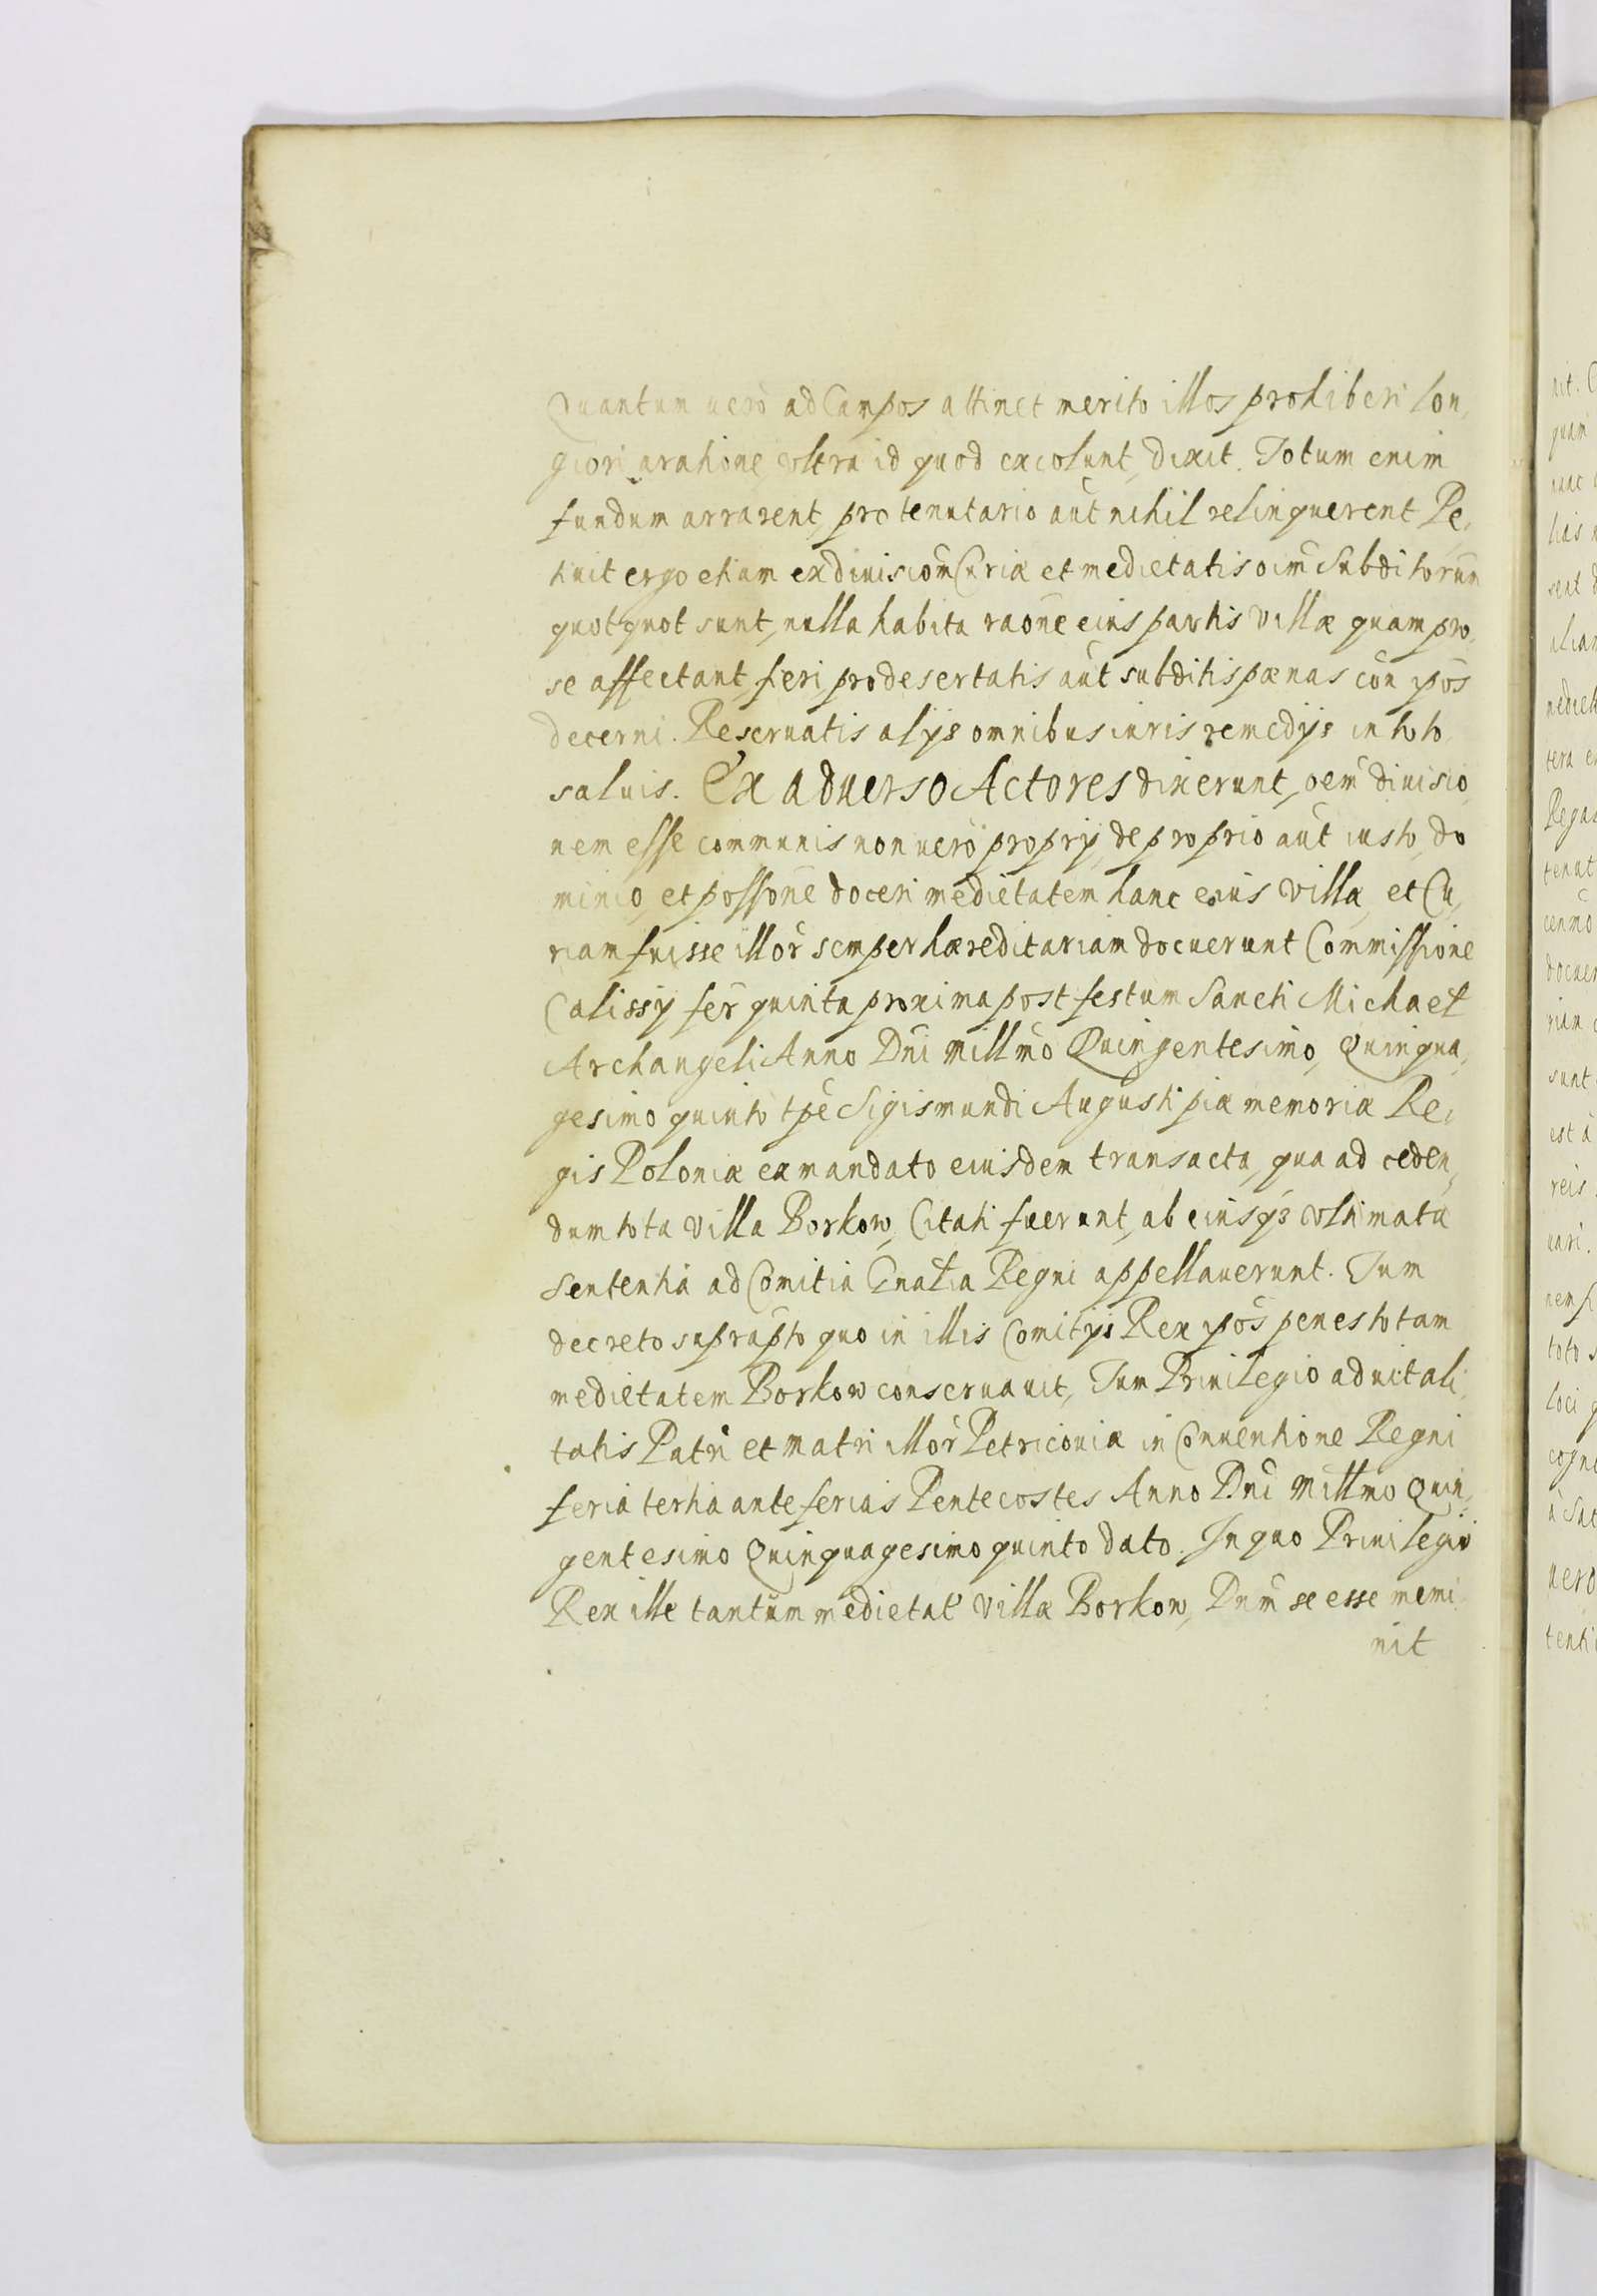 Quantum uerò ad Campos attinet merito illos prohiberi lon,
giori aratione voltra id quod excolunt, dixit. Totum enim
fundum arrarent, pro tenutario aut nihil relinquerent Pe,
tiuit ergo etiam ex diuisioñ Curiæ et medietatis oim̃ Subditorum
quotquot sunt, nulla habita raõne eius partis Villæ quam pro,
se affectant, fieri, pro desertatis aũt subditis pænas coñ ipõs
decerni. Reseruatis alijs omnibus iuris remedijs in toto
saluis. Ex aduerso Actores dixerunt, oem̃ diuisio,
nem esse communis non uerò proprij, de proprio aũt iusto, do
minio, et possõne doceri medietatem hanc eius Villæ, et Cu,
riam fuisse illor̃ semper hæreditariam docuerunt Commissione
Calissij fer̃ quinta proxima post festum Sancti Michael
Archangeli Anno Dñi Millm̃o Quingentesimo, Quinqua,
gesimo quinto tp̃e Sigismundi Augusti piæ memoriæ Re,
gis Poloniæ ex mandato eiusdem transacta, qua ad ceden,
dum tota Villa Borkow, Citati fuerunt, ab eiusq3 vltimata
Sententia ad Comitia Gnalia Regni appellauerunt. Tum
decreto suprapto quo in illis Comitijs Rex ipõs penes totam
medietatem Borkow conseruauit, Tum Priuilegio aduitali,
tatis Patri et Matri illor̃ Petricouiæ in Conuentione Regni
feria tertia ante ferias Pentecostes Anno Dñi Millmo Quin,
gentesimo Quinquagesimo quinto dato. In quo Priuilegio
Rex ille tantum medietat Villæ Borkow, Dnm̃ se esse memi
nit